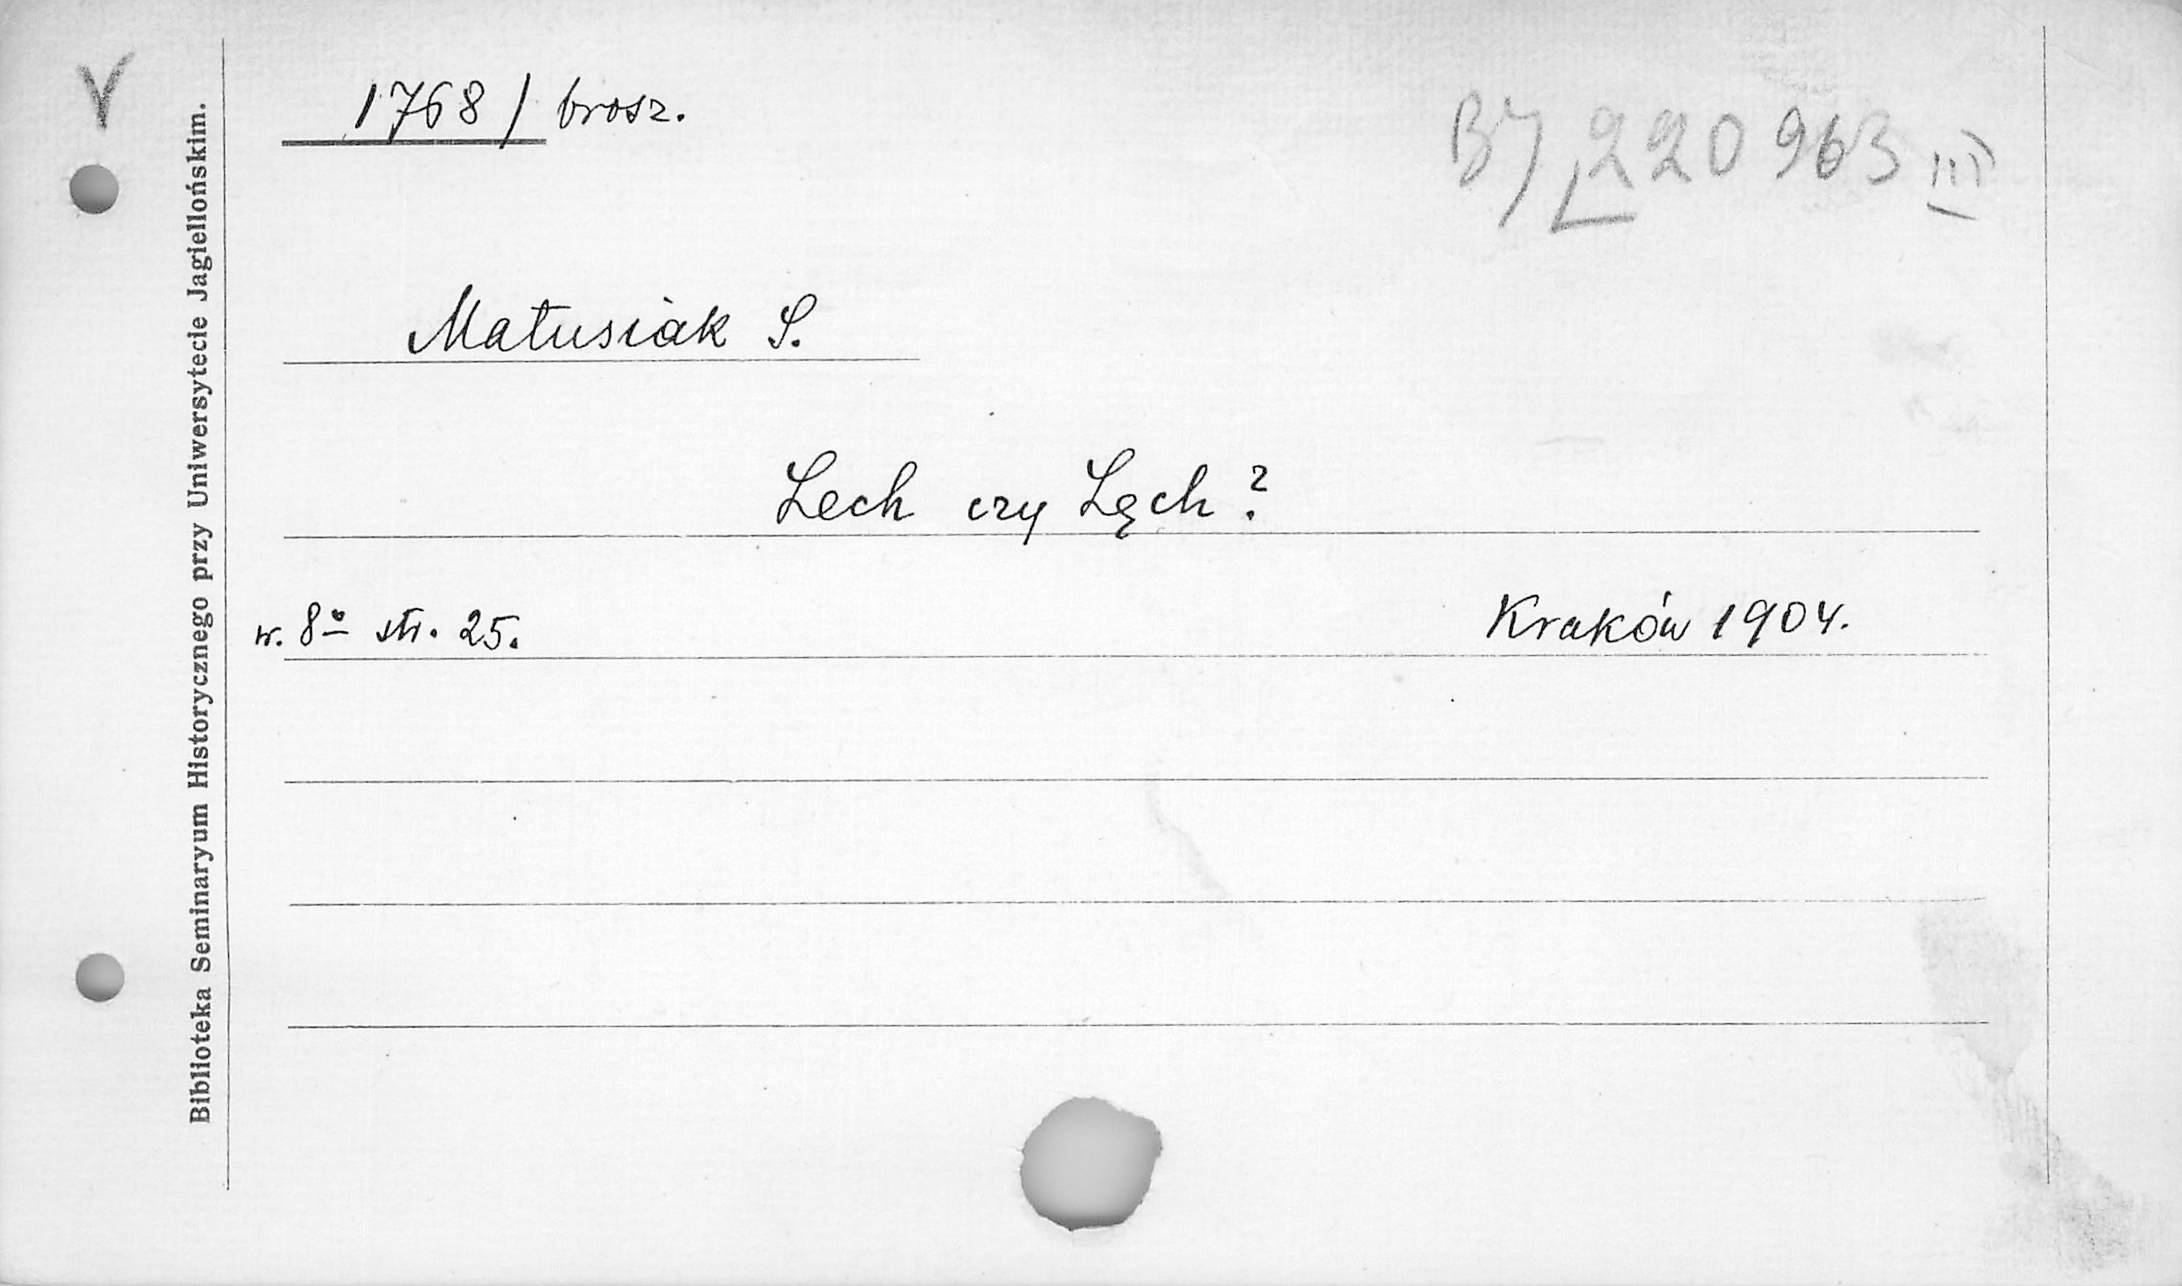 V
1768 / brosz.
BJ 220 963 III
Matusiak S.
Lech czy Lęch?
w. 8° str. 25.
Kraków 1904.
Biblioteka Seminaryum Historycznego przy Uniwersytecie Jagiellońskim.